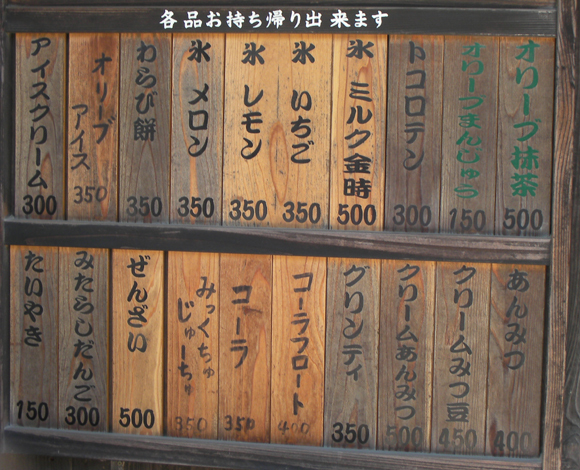 各品お持ち帰り出来ます
オリーブ抹茶
500
オリーブまんじゅう
150
トコロテン
300
氷 ミルク金時
500
氷 いちご
350
氷 レモン
350
氷 メロン
350
わらび餅
350
オリーブ
アイス
350
アイスクリーム
300
あんみつ
400
クリームみつ豆
450
クリームあんみつ
500
グリンティ
350
コーラフロート
400
コーラ
350
みっくちゅ
じゅーちゅ
350
ぜんざい
500
みたらしだんご
300
たいやき
150